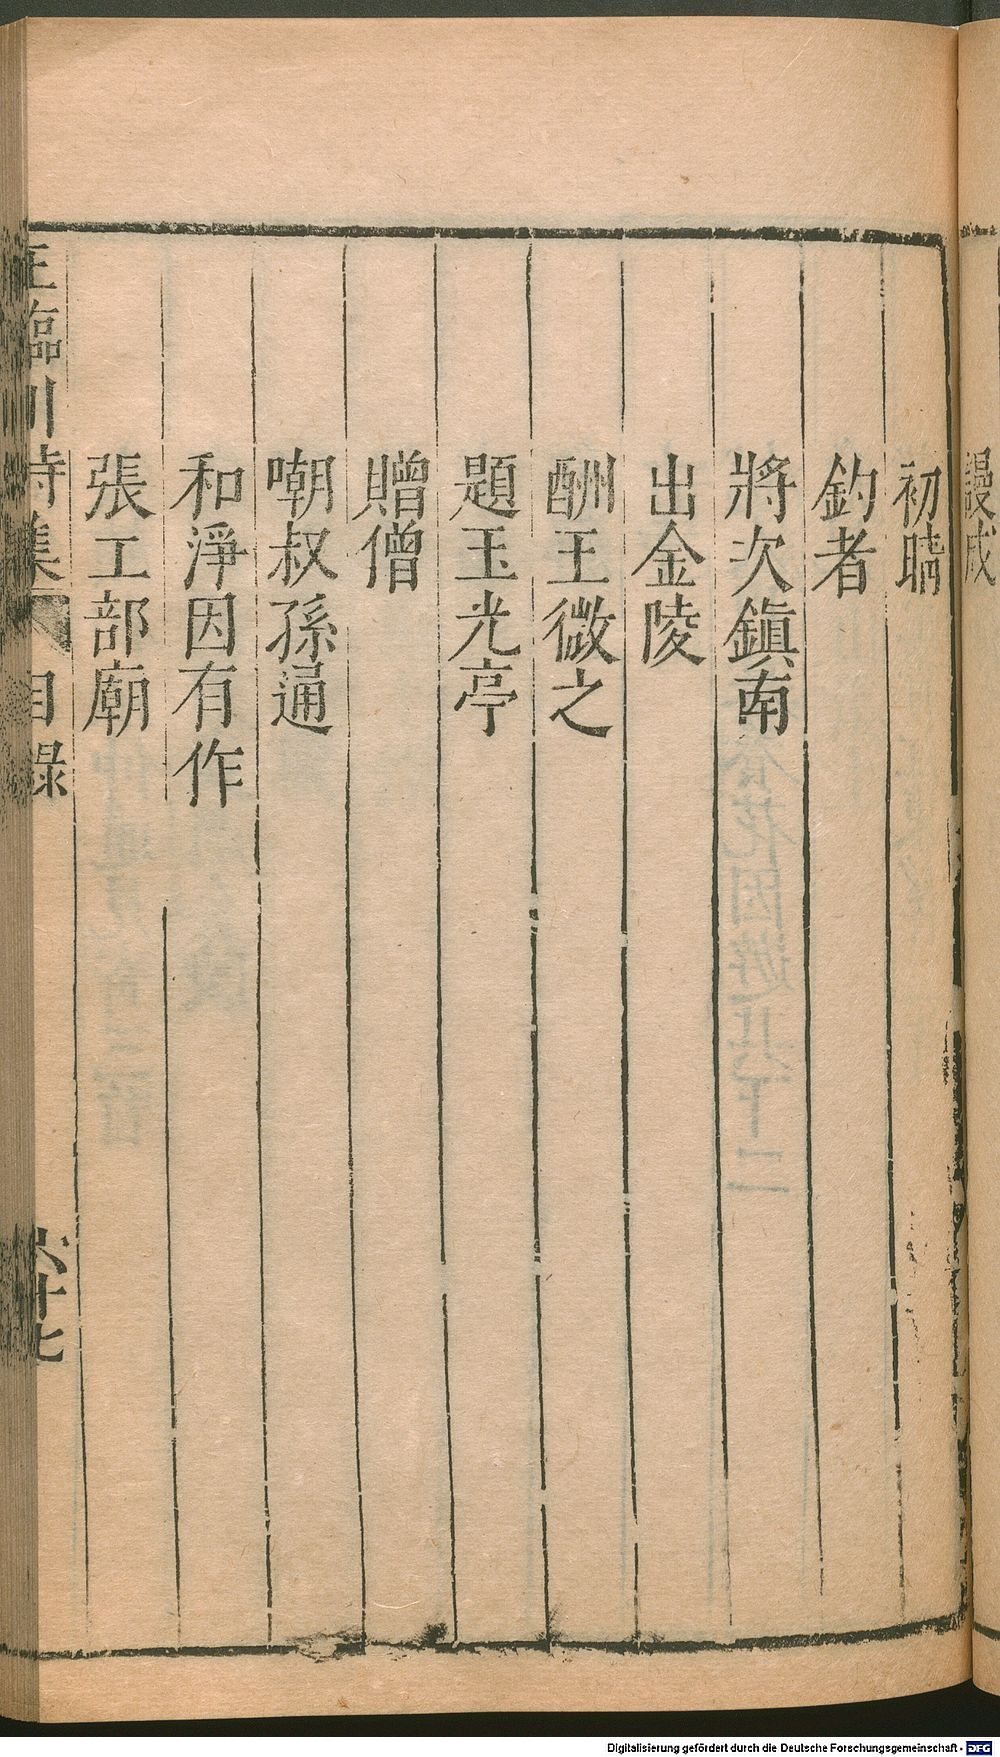 謾成
初晴
釣者
將次鎮南
出金陵
酬王微之
題玉光亭
贈僧
嘲叔孫通
和淨因有作
張工部廟
王臨川詩集 目錄 六十七
Digitalisierung gefördert durch die Deutsche Forschungsgemeinschaft - DFG